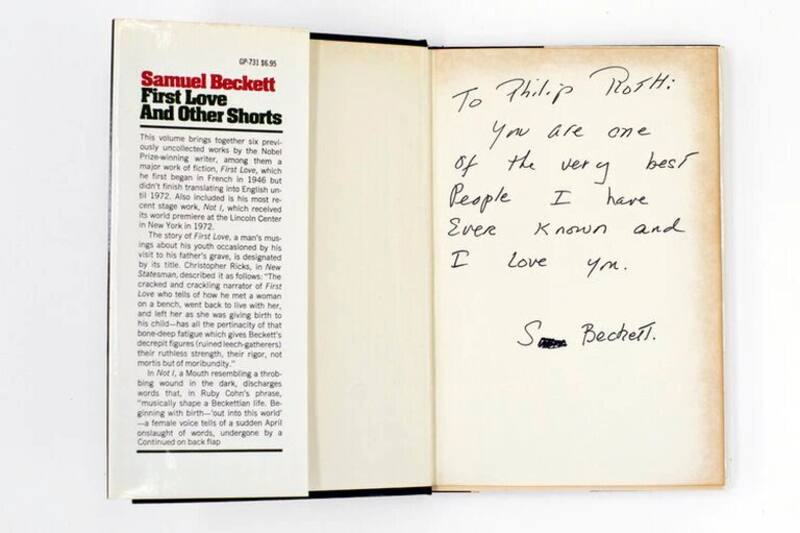 GP-731 $6.95
Samuel Beckett
First Love
And Other Shorts
This volume brings together six previ-
ously uncollected works by the Nobel
Prize-winning writer, among them a
major work of fiction, First Love, which
he first began in French in 1946 but
didn't finish translating into English un-
til 1972. Also included is his most re-
cent stage work, Not I, which received
its world premiere at the Lincoln Center
in New York in 1972.
The story of First Love, a man's mus-
ings about his youth occasioned by his
visit to his father's grave, is designated
by its title. Christopher Ricks, in New
Statesman, described it as follows: "The
cracked and crackling narrator of First
Love who tells of how he met a woman
on a bench, went back to live with her,
and left her as she was giving birth to
his child—has all the pertinacity of that
bone-deep fatigue which gives Beckett's
decrepit figures (ruined leech-gatherers)
their ruthless strength, their rigor, not
mortis but of moribundity."
In Not I, a Mouth resembling a throb-
bing wound in the dark, discharges
words that, in Ruby Cohn's phrase,
"musically shape a Beckettian life. Be-
ginning with birth—'out into this world'
—a female voice tells of a sudden April
onslaught of words, undergone by a
Continued on back flap
To Philip Roth:
You are one
of the very best
People I have
Ever known and
I love you.
S Beckett.